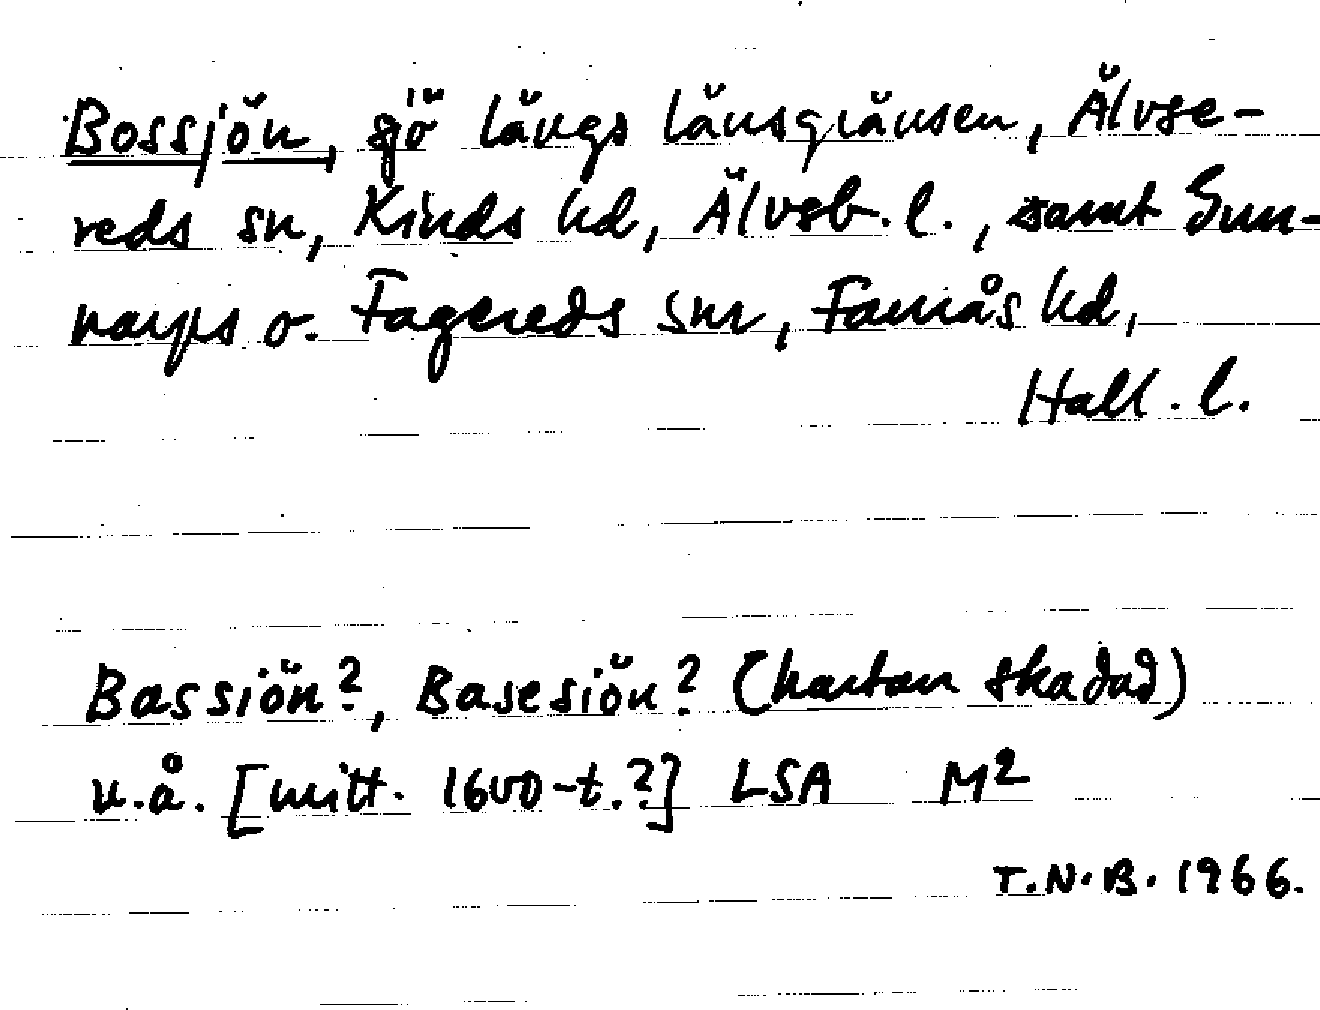 Bossjön, sjö längs länsgränsen, Älvse-
reds sn, Kinds hd, Älvsb. l., samt Gun-
narps o. Fagereds snr, Faurås hd,
Hall. l.
Bassiön?, Basesiön? (kartan skadad)
u.å. [mitt. 1600-t.?] LSA M2
T.N.B. 1966.